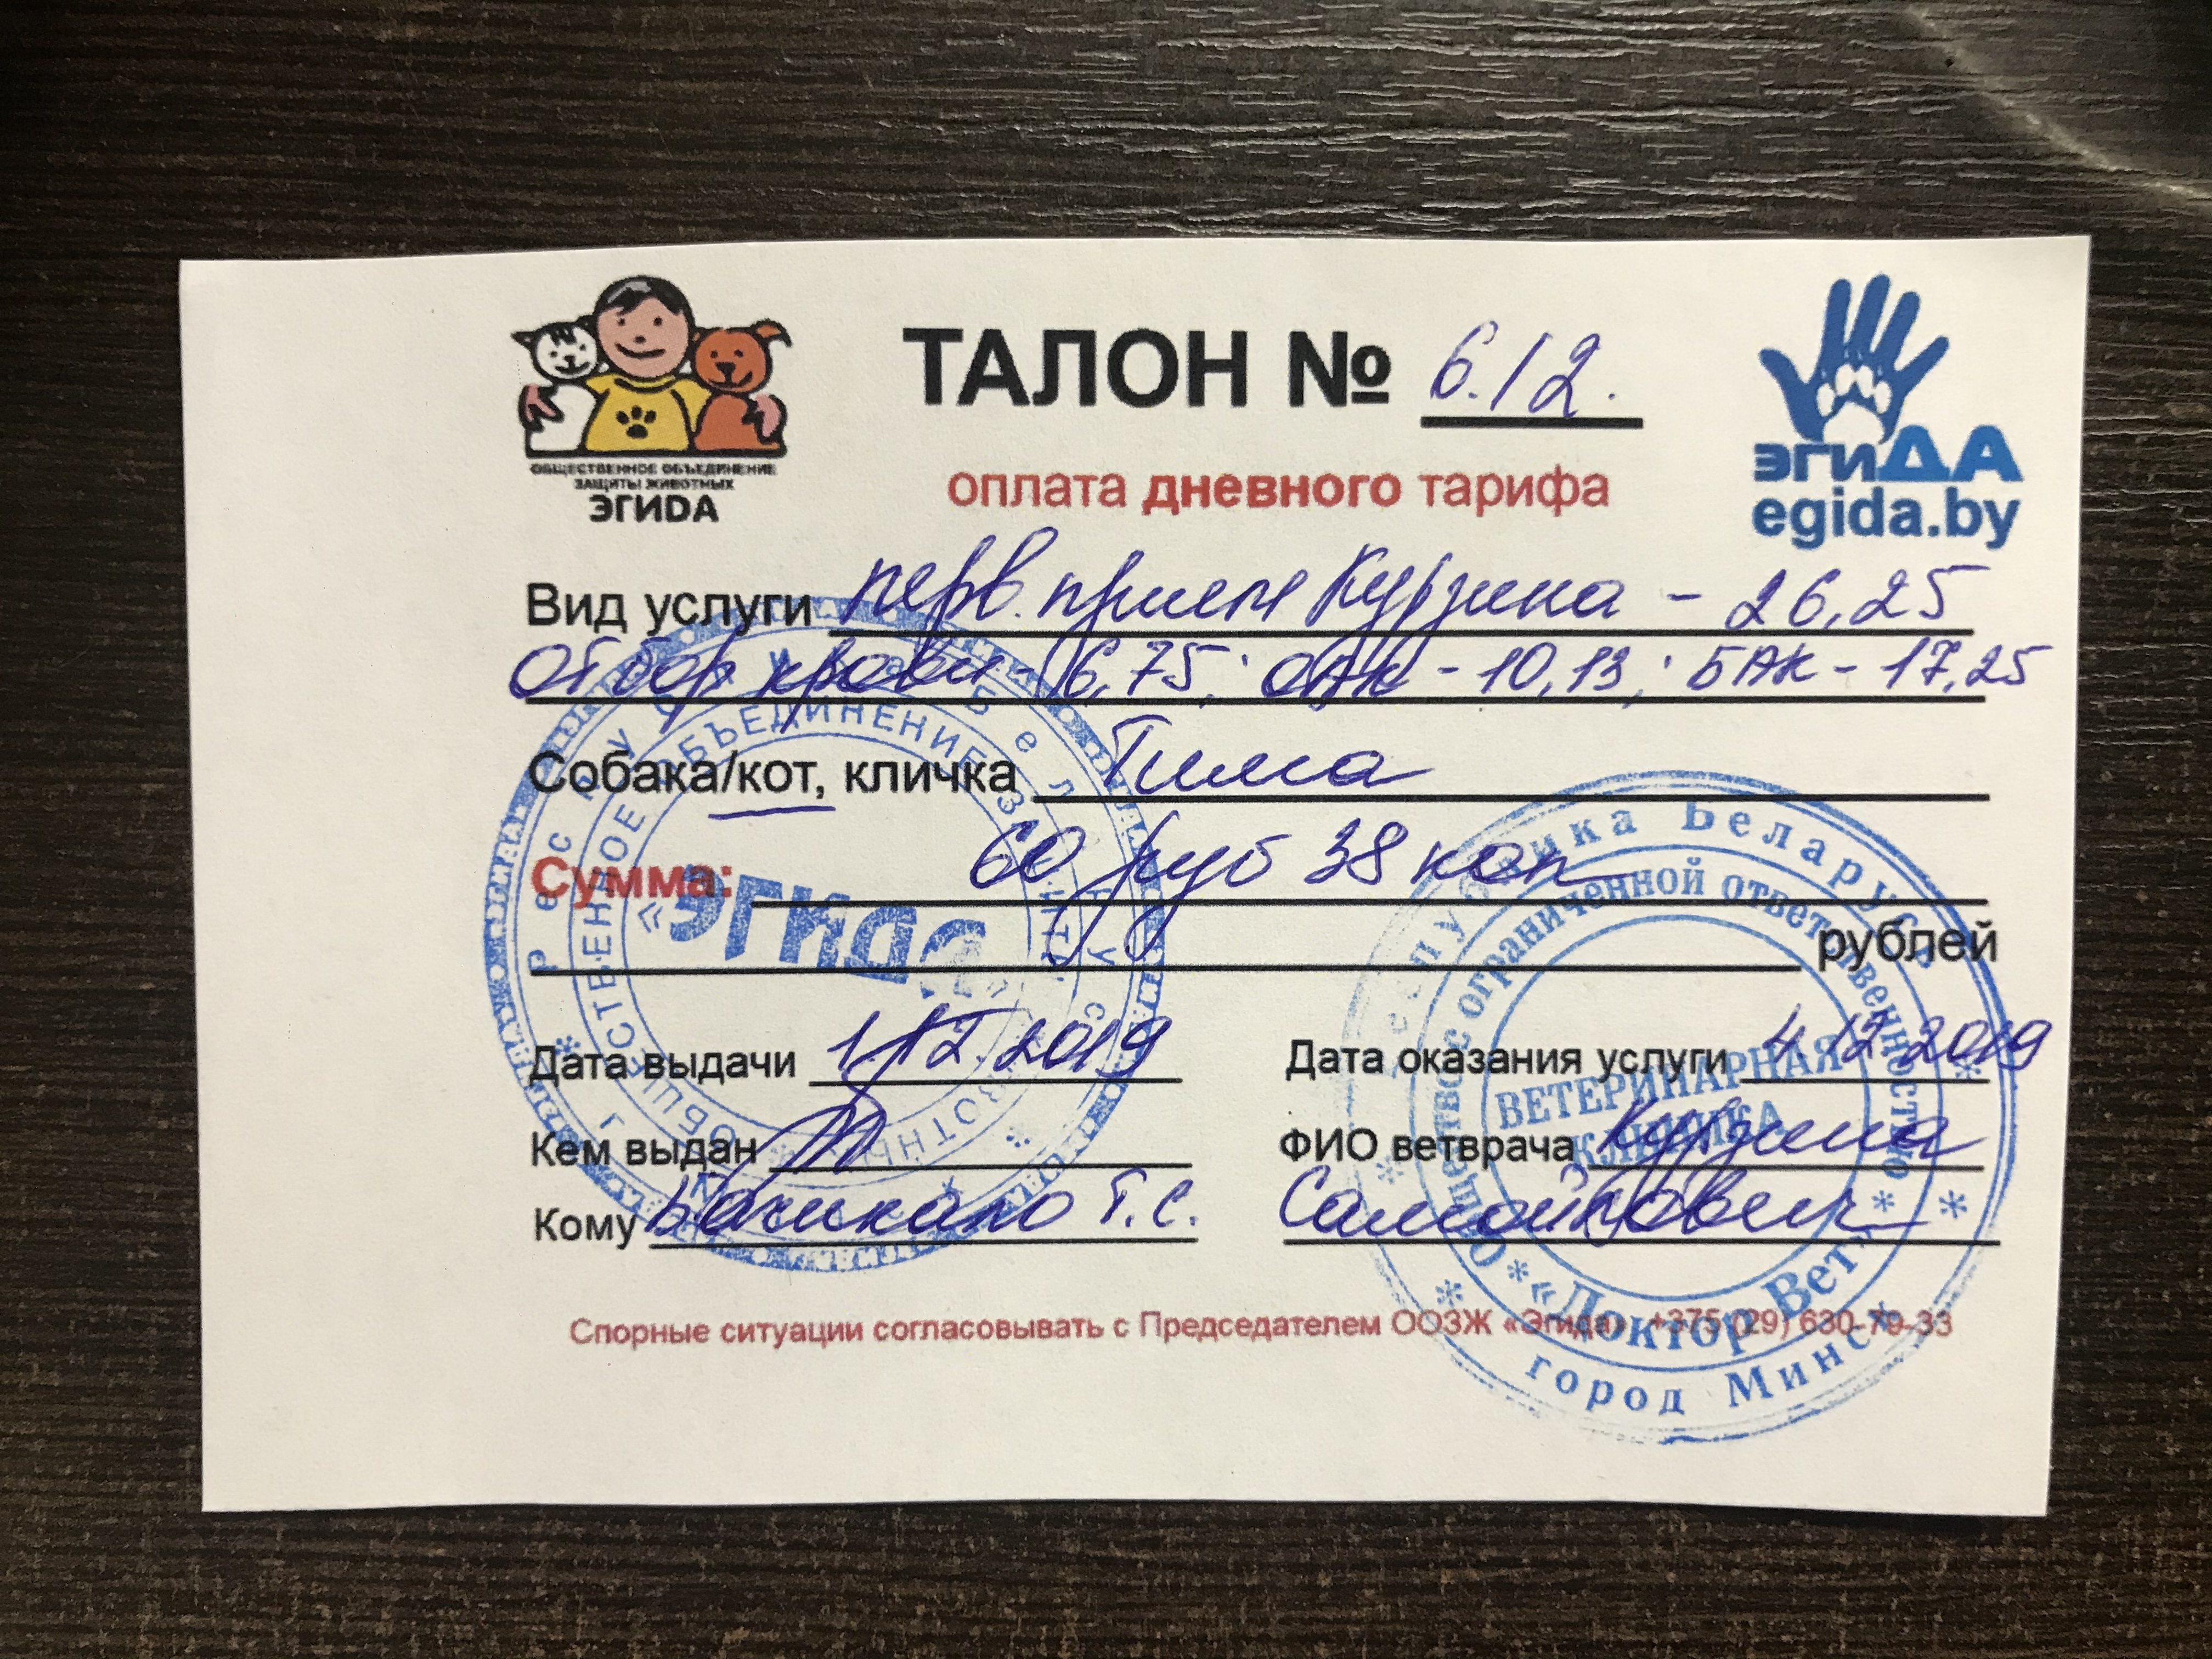 ОБЩЕСТВЕННОЕ ОБЪЕДИНЕНИЕ
ЗАЩИТЫ ЖИВОТНЫХ
ЭГИDА
ТАЛОН № 6.12.
оплата дневного тарифа
эгиДА
egida.by
Вид услуги перв. прием Курзина - 26,25
Отбор крови - 6,75; ОАК - 10,13; БАК - 17,25
Собака/кот, кличка Тима
Сумма: 60 руб 38 коп
рублей
Дата выдачи 1.12.2019
Дата оказания услуги 4.12.2019
Кем выдан
ФИО ветврача Курзина
Кому Т.С.
Самойлович
Спорные ситуации согласовывать с Председателем ООЗЖ «Эгида» +375 (29) 630-79-33
Республика Беларусь
ОБЩЕСТВЕННОЕ ОБЪЕДИНЕНИЕ ЗАЩИТЫ ЖИВОТНЫХ
«Эгида»
Республика Беларусь
Общество с ограниченной ответственностью
ВЕТЕРИНАРНАЯ
КЛИНИКА
«Доктор Вет»
город Минск